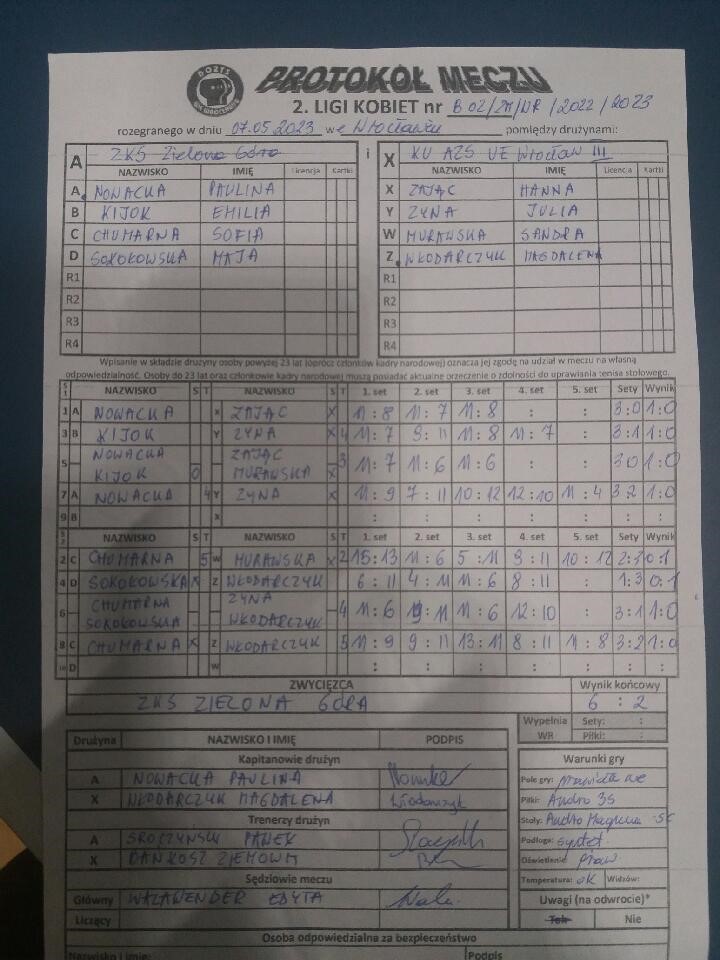 DOZTS
PROTOKÓŁ MECZU
2. LIGI KOBIET nr B 02/2M/WR /2022 / 2023
rozegranego w dniu 07.05 2023 we Wrocławiu pomiędzy drużynami:
A ZKS Zielona Góra i X KU AZS UE Wrocław III
NAZWISKO IMIĘ Licencja Kartki NAZWISKO IMIĘ Licencja Kartki
A NOWACKA PAULINA X ZAJĄC HANNA
B KIJOK EMILIA Y ZYNA JULIA
C CHUMARNA SOFIA W MURAWSKA SANDRA
D SOKOŁOWSKA MAJA Z WŁODARCZYK MAGDALENA
R1 R1
R2 R2
R3 R3
R4 R4
Wpisanie w składzie drużyny osoby powyżej 23 lat (oprócz członków kadry narodowej) oznacza jej zgodę na udział w meczu na własną
odpowiedzialność. Osoby do 23 lat oraz członkowie kadry narodowej muszą posiadać aktualne orzeczenie o zdolności do uprawiania tenisa stołowego.
S1 NAZWISKO S T NAZWISKO S T 1. set 2. set 3. set 4. set 5. set Sety Wynik
1 A NOWACKA X ZAJĄC X 11 : 8 11 : 7 11 : 8 : : 3:0 1:0
3 B KIJOK Y ZYNA X 4 11 : 7 9 : 11 11 : 8 11 : 7 : 3:1 1:0
5 NOWACKA KIJOK 0 ZAJĄC MURAWSKA X 3 11 : 7 11 : 6 11 : 6 : : 3 0 1:0
7 A NOWACKA 4 Y ZYNA 11 : 9 7 : 11 10 : 12 12 : 10 11 : 4 3:2 1:0
9 B X : : : : :
S2 NAZWISKO S T NAZWISKO S T 1. set 2. set 3. set 4. set 5. set Sety Wynik
2 C CHUMARNA 5 W MURAWSKA X 2 15 : 13 11 : 6 5 : 11 9 : 11 10 : 12 2:3 0:1
4 D SOKOŁOWSKA X Z WŁODARCZYK 6 : 11 4 : 11 11 : 6 8 : 11 : 1:3 0:1
6 CHUMARNA SOKOŁOWSKA ZYNA WŁODARCZYK 4 11 : 6 : 11 11 : 6 12 : 10 : 3:1 1:0
8 C CHUMARNA X Z WŁODARCZYK 5 11 : 9 9 : 11 13 : 11 8 : 11 11 : 8 3:2 1:0
10 D W : : : : :
ZWYCIĘZCA Wynik końcowy
ZKS ZIELONA GÓRA 6 : 2
Wypełnia WR Sety: : Piłki: :
Drużyna NAZWISKO I IMIĘ PODPIS Warunki gry
Kapitanowie drużyn
A NOWACKA PAULINA Pole gry:
X WŁODARCZYK MAGDALENA Włodarczyk Piłki: Andro 3S
Trenerzy drużyn Stoły: Andro Magnum SC
A SROCZYŃSKI PAWEŁ Podłoga:
X DANKOSZ ZIEMOWIT Oświetlenie:
Sędziowie meczu Temperatura: OK Widzów:
Główny WALAWENDER EDYTA Uwagi (na odwrocie)*
Liczący Tak Nie
Osoba odpowiedzialna za bezpieczeństwo
Nazwisko i imię: Podpis